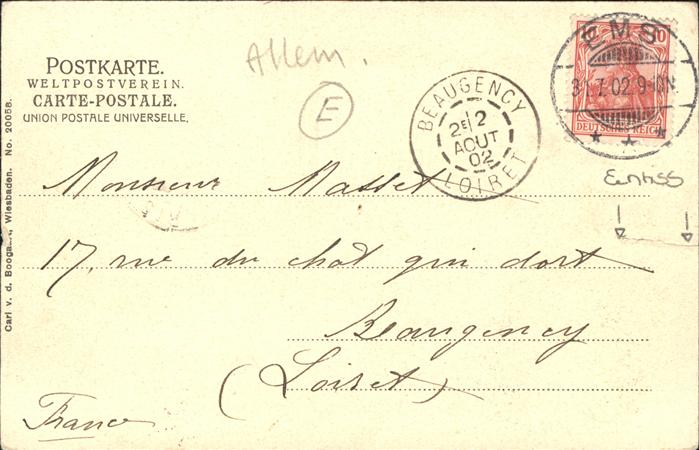 POSTKARTE.
WELTPOSTVEREIN.
CARTE-POSTALE.
UNION POSTALE UNIVERSELLE.
Allem.
E
BEAUGENCY
2E 2
AOUT
02
LOIRET
10
EMS
31.7.02.9-10N
DEUTSCHES REICH
Monsieur Masset
17, rue du chat qui dort
Beaugency
(Loiret)
France
Carl v. d. Boogaart, Wiesbaden. No. 20058.